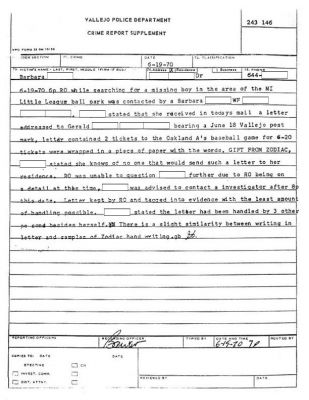 VALLEJO POLICE DEPARTMENT
CRIME REPORT SUPPLEMENT
243 146
CODE SECTION
CRIME
DATE
CLASSIFICATION
6-19-70
Residence
Business
PHONE
Barbara
Dr
644-
6-19-70 6p RO while searching for a missing boy in the area of the MI
Little League ball park was contacted by a Barbara WF
, stated that she received in todays mail a letter
addressed to Gerald bearing a June 18 Vallejo post
mark, letter contained 2 tickets to the Oakland A's baseball game for 6-20
tickets were wrapped in a piece of paper with the words, GIFT FROM ZODIAC,
stated she knows of no one that would send such a letter to her
residence. RO was unable to question further due to RO being on
a detail at this time, was advised to contact a investigator after 8p
this date. Letter kept by RO and tagged into evidence with the least amount
of handling possible. stated the letter had been handled by 3 other
persond besides herself. There is a slight similarity between writing in
letter and samples of Zodiac hand writing.gb
REPORTING OFFICERS
RECORDING OFFICER
TYPED BY
DATE AND TIME
ROUTED BY
6-19-70 7P
COPIES TO:
DATE
DATE
DETECTIVE
CII
INVEST. COMM.
DIST. ATTNY.
REVIEWED BY
DATE